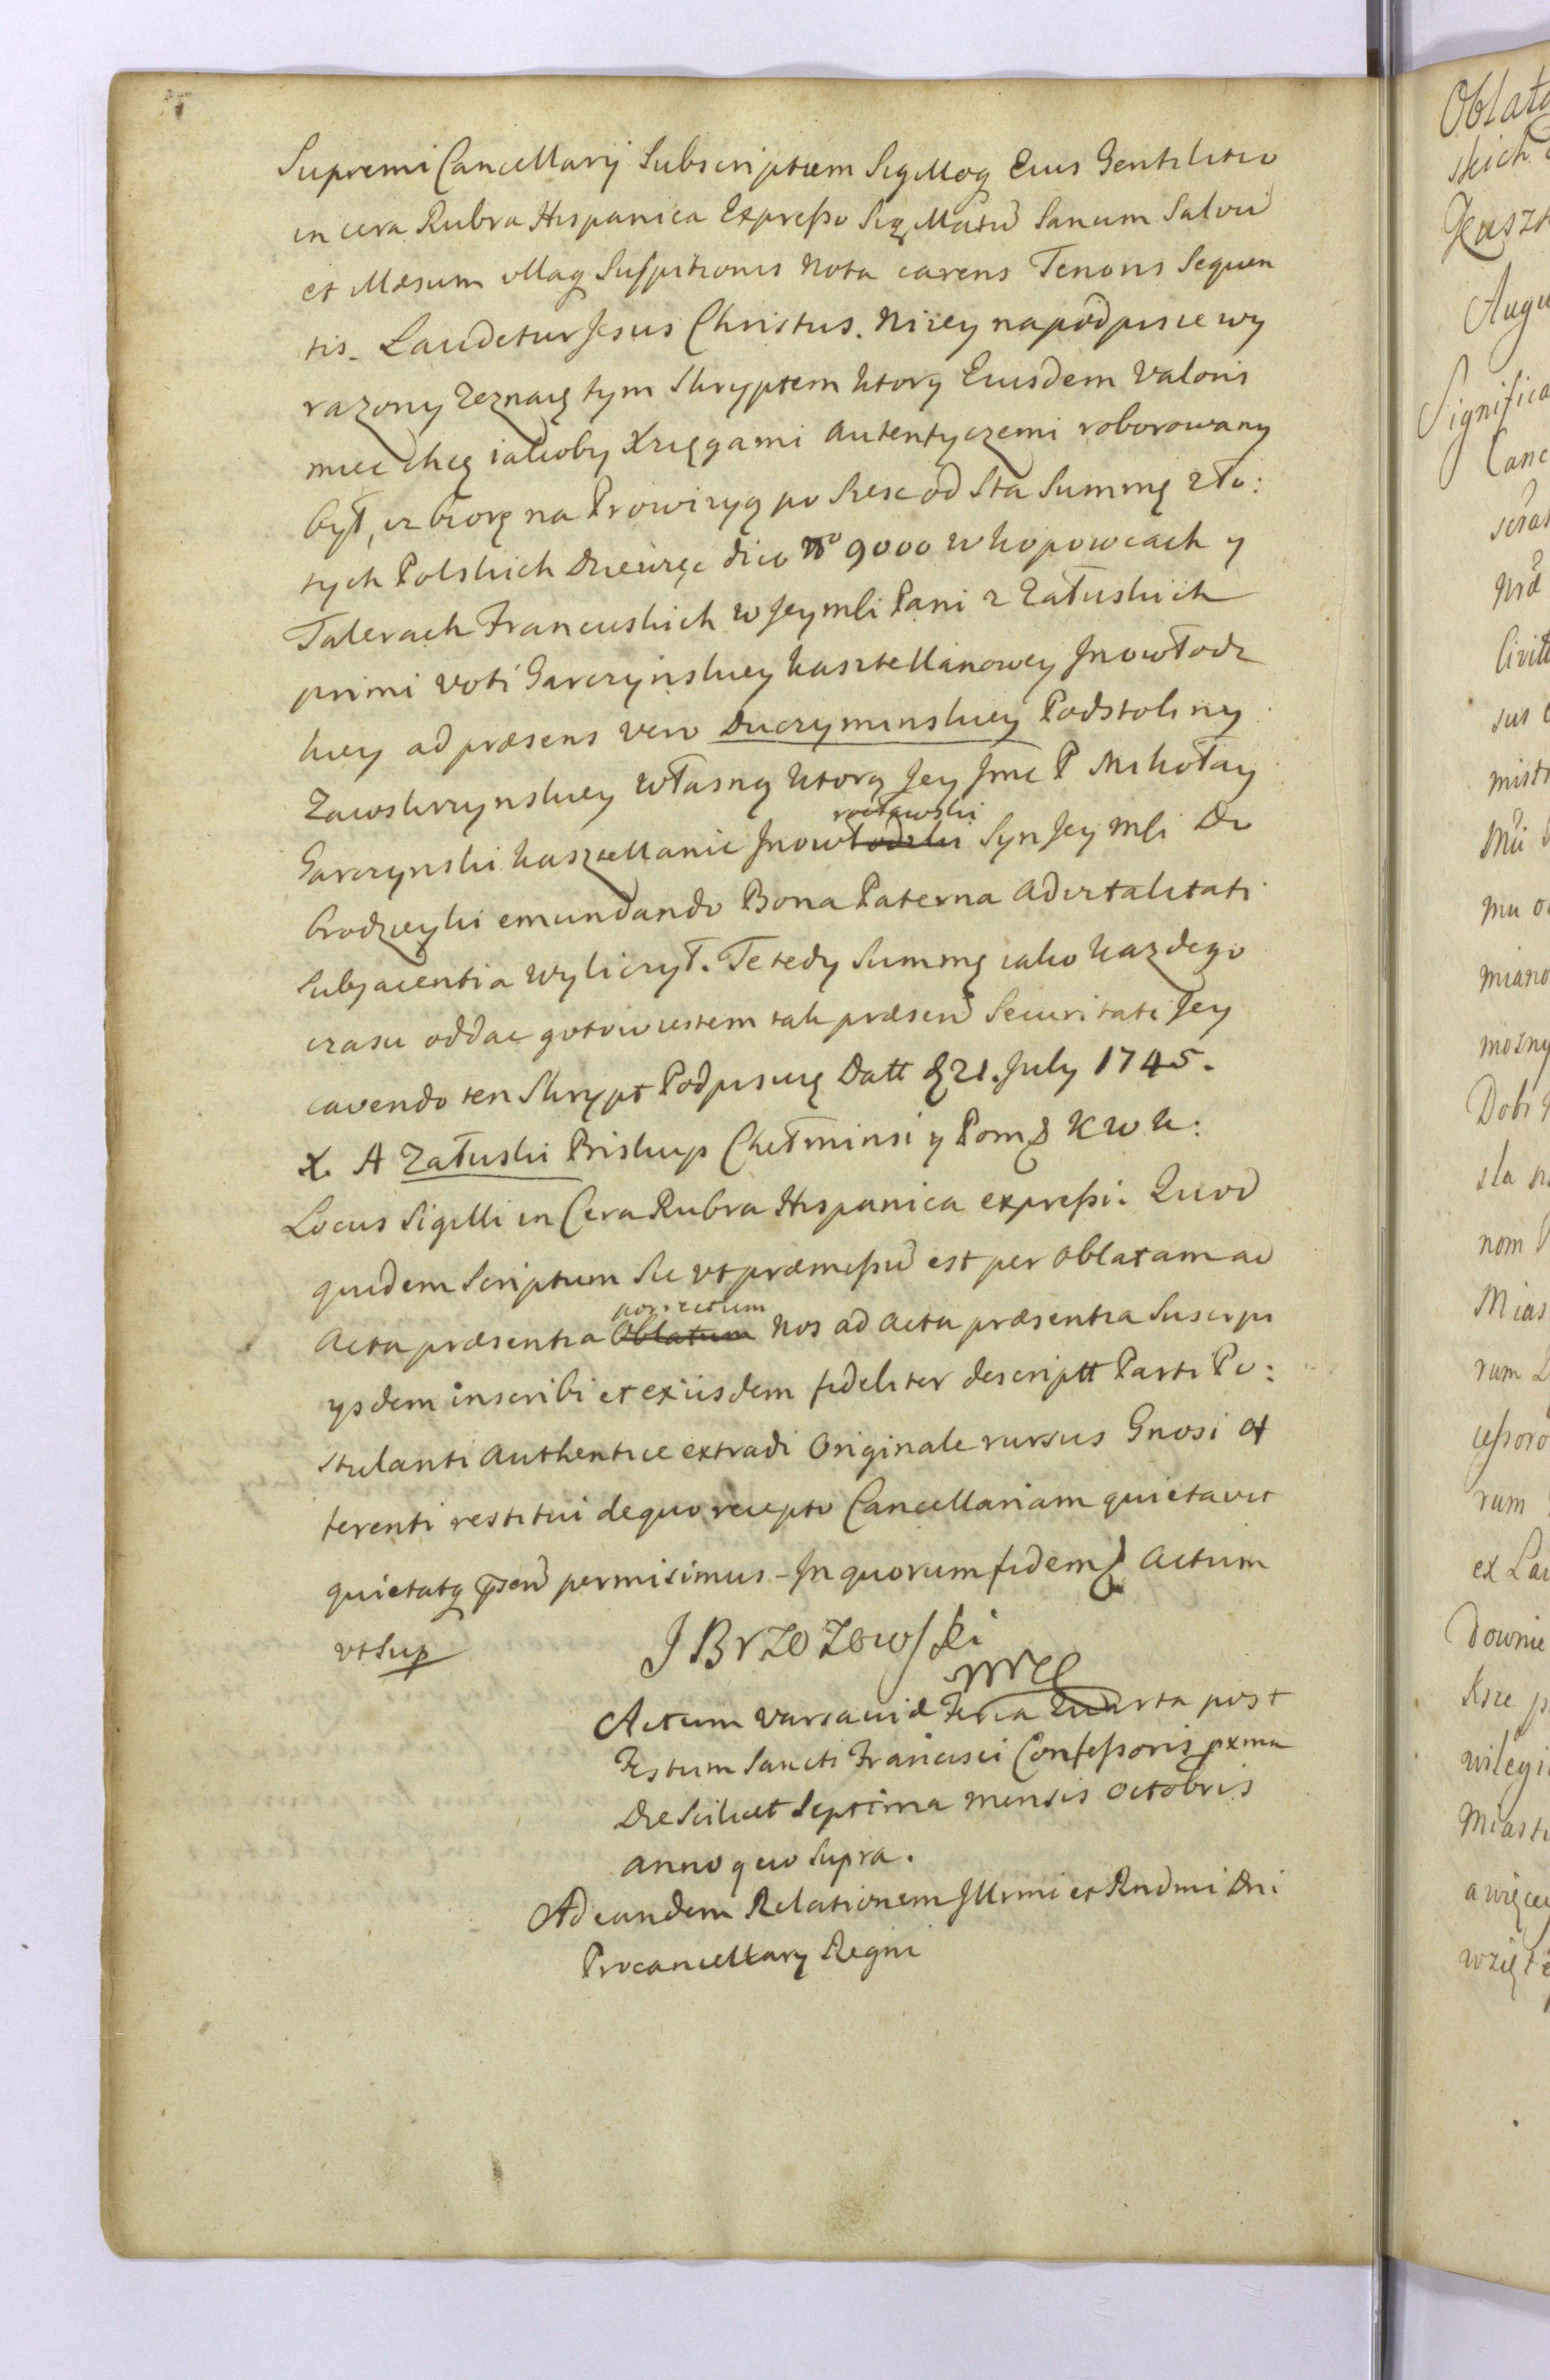 Supremi Cancellarij Subscriptum Sigilloq Eius Gentilitio
in cera Rubra Hispanica Expresso Sigillatu Sanum Salvu
et illæsum ullaq Suspitionis Nota carens Tenoris Sequen
tis. Laudetur Jesus Christus. Niżey na podpisie wy
razony Zeznaię tym Skryptem ktory Eiusdem Valoris
miec chcę iakoby Xsięgami autentycznemi roborowany
był, iz biorę na Prowizyą po Szesc od Sta Summę Zło:
tych Polskich Dziewięc dico No 9000 w kopowcach y
Talerach Francuskich w Jeymści Pani z Załuskich
primi voti Garczynskiey kasztellanowey Jnowłodz
kiey ad præsens vero Duczyminskiey Podstoliny
Zawskrzynskiey Własną ktorą Jey Jmc P Mikołay
Garczynski kasztellanic Jnowłodzki rocławski Syn Jey Mści Do
brodzieyki emundando Bona Paterna advitalitati
Subjacentia wyliczył. Tę tedy Summę iako kazdego
czasu oddac gotow iestem tak præsen Securitati Jey
cavendo ten Skrypt Podpisuię Datt d 21. July 1745.
X. A Załuski Biskup Chełminsi y Pom K W K:
Locus Sigilli in Cera Rubra Hispanica expressi. Quod
quidem Scriptum Sic ut præmissu est per oblatam ad
Acta præsentia Oblatum porrectum Nos ad acta præsentia Suscipi
ysdem inscribi et ex iisdem fideliter descriptt Parti Po:
stulanti Authentice extradi Originale rursus Gnosi of
ferenti restitui de quo recepto Cancellariam quietavit
quietatq pnsen permisimus - In quorum fidem Actum
ut Sup
J Brzozowski
mp
Actum Varsaviæ Feria Quarta post
Festum Sancti Francisci Confessoris pxma
Die Scilicet Septima mensis Octobris
anno quo Supra.
Ad eandem Relationem Jllrmi et Rndmi Dni
Procancellary Regni